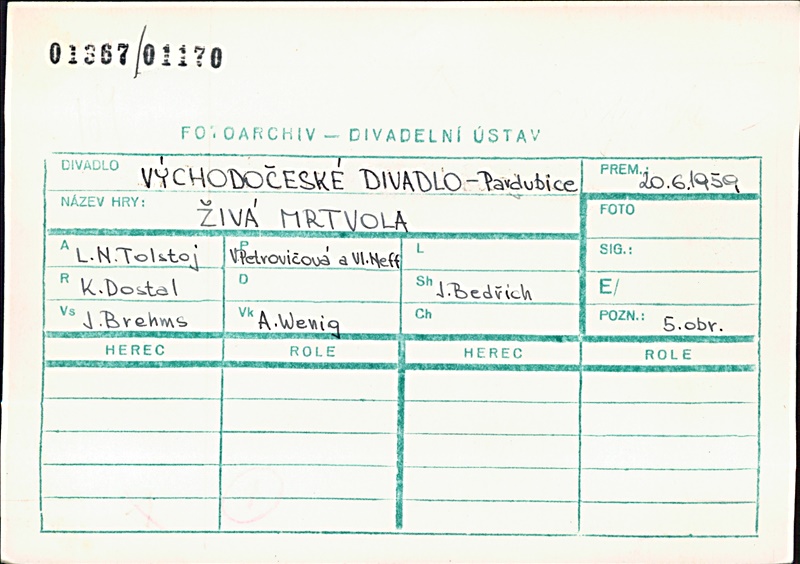 01367/01170
FOTOARCHIV — DIVADELNÍ ÚSTAV
DIVADLO VÝCHODOČESKÉ DIVADLO - Pardubice PREM. 20.6.1959
NÁZEV HRY: ŽIVÁ MRTVOLA FOTO
A L.N.Tolstoj P V.Petrovičová a Vl.Neff L SIG.:
R K.Dostal D Sh J.Bedřich E/
Vs J.Brehms Vk A.Wenig Ch POZN.: 5.obr.
HEREC ROLE HEREC ROLE